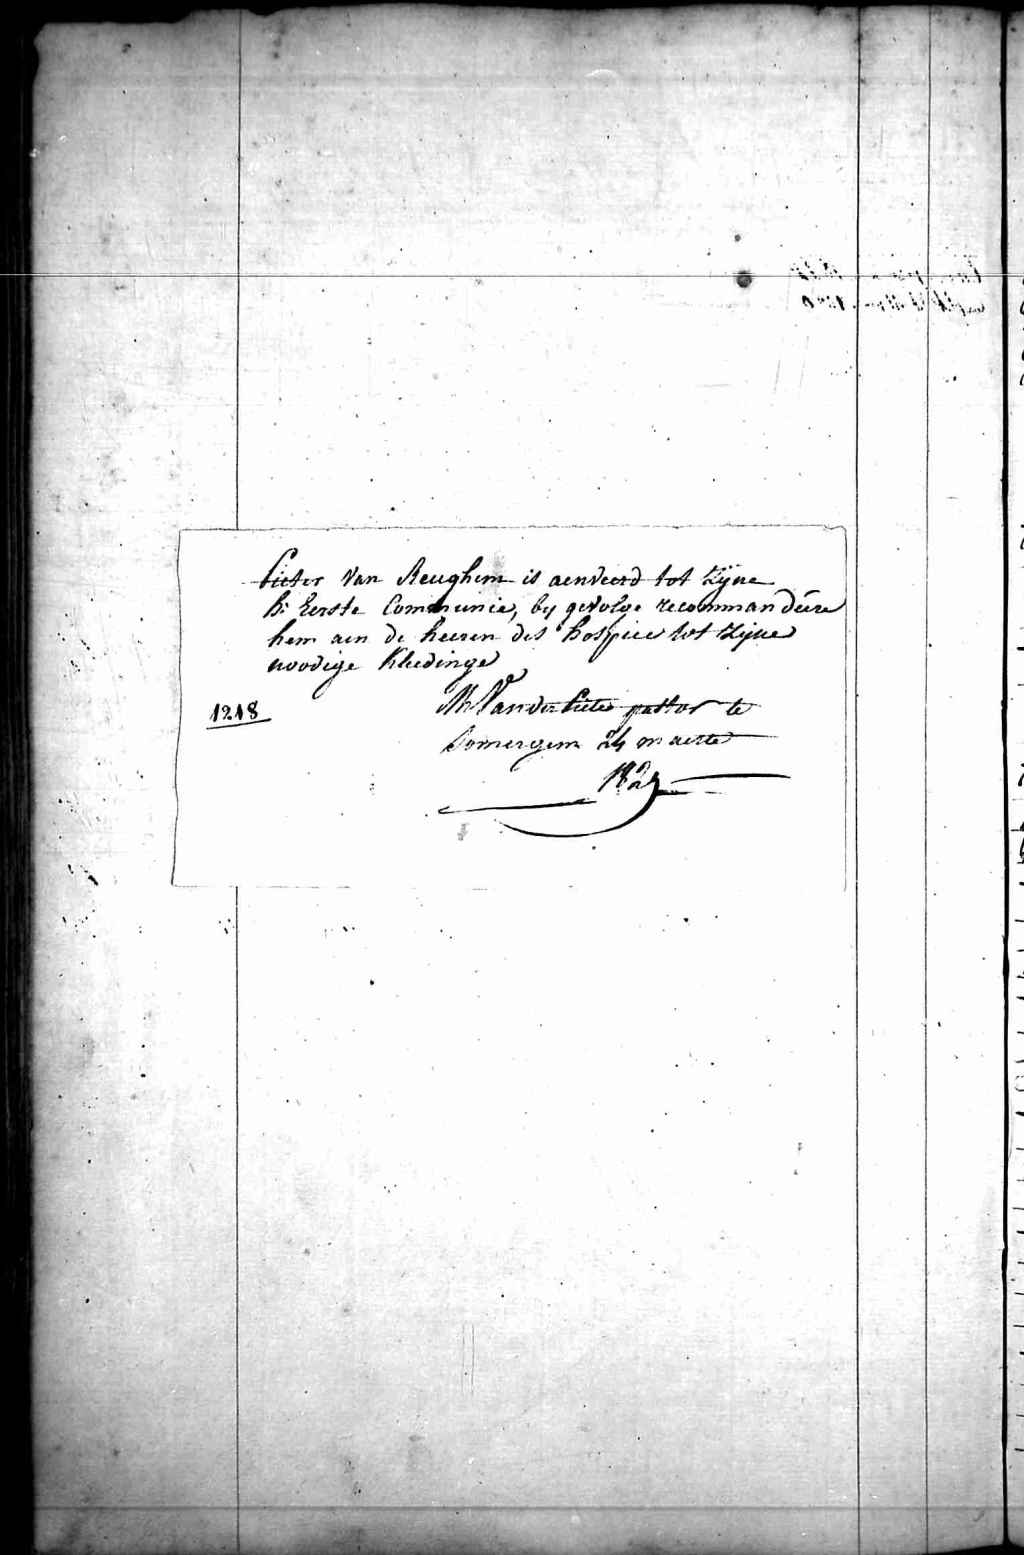 Pieter Van Reughem is aenveerd tot zyne
h: Eerste Communie, by gevolge recommandére
hem aen de heeren des hospice tot zyne
noodige Kledinge
1218
pastor te
Somergem 24 maerte
182